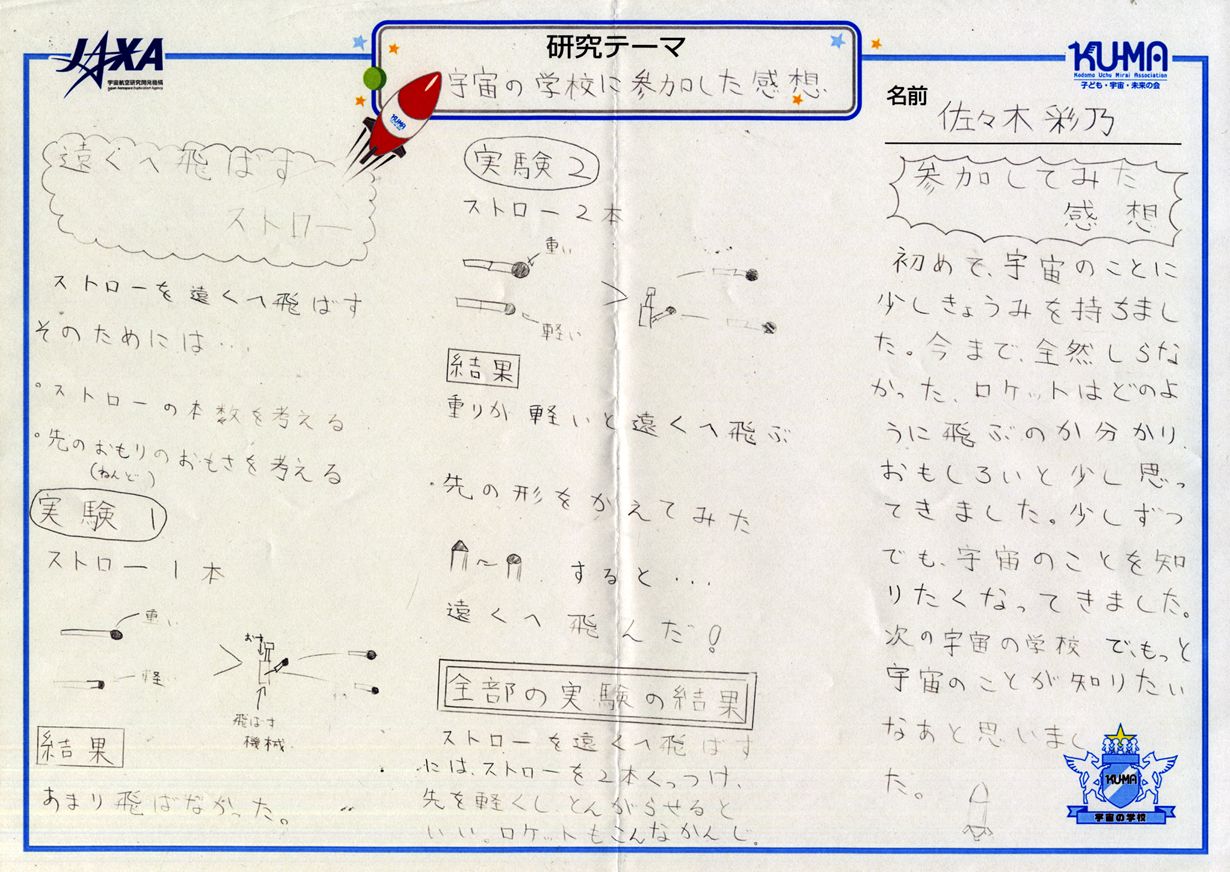 JAXA
宇宙航空研究開発機構
Japan Aerospace Exploration Agency
研究テーマ
宇宙の学校に参加した感想
KUMA
KUMA
Kodomo Uchu Mirai Association
子ども・宇宙・未来の会
名前 佐々木彩乃
遠くへ飛ばす
ストロー
ストローを遠くへ飛ばす
そのためには…
・ストローの本数を考える
・先のおもりのおもさを考える
(ねんど)
実験1
ストロー1本
重い
軽い
おす
飛ばす
機械
結果
あまり飛ばなかった。
実験2
ストロー2本
重い
軽い
結果
重りが軽いと遠くへ飛ぶ
・先の形をかえてみた
〜 すると…
遠くへ飛んだ!
全部の実験の結果
ストローを遠くへ飛ばす
には、ストローを2本くっつけ、
先を軽くし、とんがらせると
いい。ロケットもこんなかんじ。
参加してみた
感想
初めて、宇宙のことに
少しきょうみを持ちまし
た。今まで、全然しらな
かった、ロケットはどのよ
うに飛ぶのか分かり
おもしろいと少し思っ
てきました。少しずつ
でも、宇宙のことを知
りたくなってきました。
次の宇宙の学校でもっと
宇宙のことが知りたい
なあと思いまし
た。
KUMA
宇宙の学校